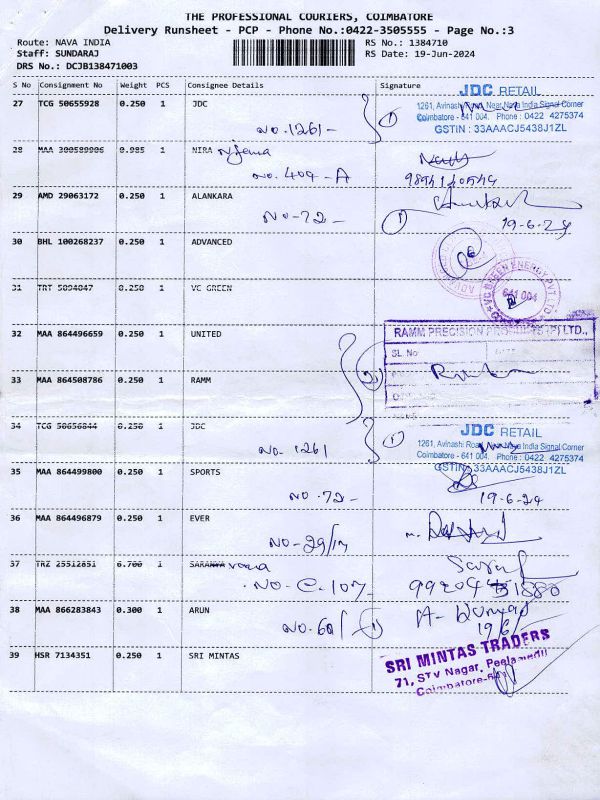 THE PROFESSIONAL COURIERS, COIMBATORE
Delivery Runsheet - PCP - Phone No.:0422-3505555 - Page No.:3
Route: NAVA INDIA RS No.: 1384710
Staff: SUNDARAJ RS Date: 19-Jun-2024
DRS No.: DCJB138471003
S No Consignment No Weight PCS Consignee Details Signature
27 TCG 50655928 0.250 1 JDC
NO.1261-
1
JDC RETAIL
1261, Avinashi Road, Near Nava India Signal Corner
Coimbatore - 641 004. Phone : 0422 4275374
GSTIN : 33AAACJ5438J1ZL
28 MAA 300589986 0.985 1 NIRA
NO. 404-A
29 AMD 29063172 0.250 1 ALANKARA
NO-72-
1
19-6-24
30 BHL 100268237 0.250 1 ADVANCED
31 TRT 5894047 0.250 1 VC GREEN
VC GREEN ENERGY PVT LTD
641 004
32 MAA 864496659 0.250 1 UNITED
RAMM PRECISION (P) LTD.,
SL No
33 MAA 864508786 0.250 1 RAMM
2
34 TCG 50656844 0.250 1 JDC
NO. 1261
1
JDC RETAIL
1261, Avinashi Road, Near Nava India Signal Corner
Coimbatore - 641 004. Phone : 0422 4275374
GSTIN : 33AAACJ5438J1ZL
35 MAA 864499800 0.250 1 SPORTS
NO.72-
19-6-24
36 MAA 864496879 0.250 1 EVER
NO-29/
37 TRZ 25512851 6.700 1
NO-C-107-
38 MAA 866283843 0.300 1 ARUN
NO.60/
1
A-Kumar
19/6/
39 HSR 7134351 0.250 1 SRI MINTAS
SRI MINTAS TRADERS
71, STV Nagar, Peelamedu
Coimbatore-641